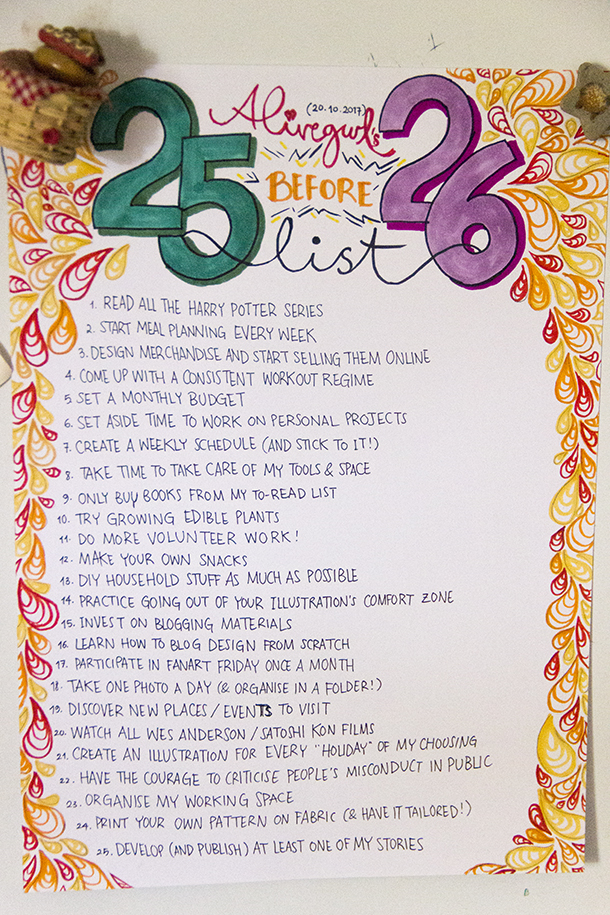 Alivegurl's
(20.10.2017)
25 BEFORE 26
list
1. READ ALL THE HARRY POTTER SERIES
2. START MEAL PLANNING EVERY WEEK
3. DESIGN MERCHANDISE AND START SELLING THEM ONLINE
4. COME UP WITH A CONSISTENT WORKOUT REGIME
5. SET A MONTHLY BUDGET
6. SET ASIDE TIME TO WORK ON PERSONAL PROJECTS
7. CREATE A WEEKLY SCHEDULE (AND STICK TO IT!)
8. TAKE TIME TO TAKE CARE OF MY TOOLS & SPACE
9. ONLY BUY BOOKS FROM MY TO-READ LIST
10. TRY GROWING EDIBLE PLANTS
11. DO MORE VOLUNTEER WORK!
12. MAKE YOUR OWN SNACKS
13. DIY HOUSEHOLD STUFF AS MUCH AS POSSIBLE
14. PRACTICE GOING OUT OF YOUR ILLUSTRATION'S COMFORT ZONE
15. INVEST ON BLOGGING MATERIALS
16. LEARN HOW TO BLOG DESIGN FROM SCRATCH
17. PARTICIPATE IN FANART FRIDAY ONCE A MONTH
18. TAKE ONE PHOTO A DAY (& ORGANISE IN A FOLDER!)
19. DISCOVER NEW PLACES / EVENTS TO VISIT
20. WATCH ALL WES ANDERSON / SATOSHI KON FILMS
21. CREATE AN ILLUSTRATION FOR EVERY "HOLIDAY" OF MY CHOOSING
22. HAVE THE COURAGE TO CRITICISE PEOPLE'S MISCONDUCT IN PUBLIC
23. ORGANISE MY WORKING SPACE
24. PRINT YOUR OWN PATTERN ON FABRIC (& HAVE IT TAILORED!)
25. DEVELOP (AND PUBLISH) AT LEAST ONE OF MY STORIES